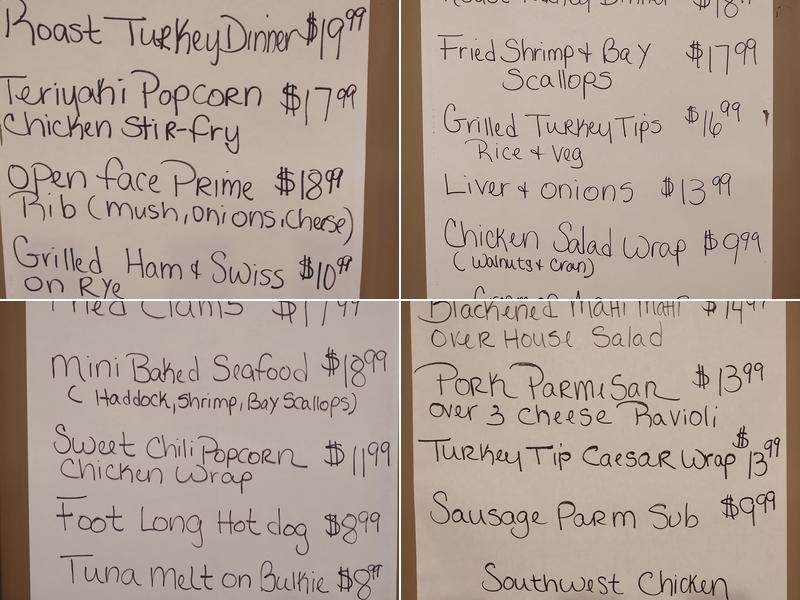 Roast Turkey Dinner $19.99
Teriyaki Popcorn $17.99
Chicken Stir-fry
Open face Prime $18.99
Rib (mush, onions, cheese)
Grilled Ham & Swiss $10.99
on Rye
Roast Turkey Dinner $18
Fried Shrimp & Bay $17.99
Scallops
Grilled Turkey Tips $16.99
Rice & Veg
Liver & onions $13.99
Chicken Salad Wrap $9.99
(Walnuts & Cran)
Fried Clams $17.99
Mini Baked Seafood $18.99
(Haddock, Shrimp, Bay Scallops)
Sweet Chili Popcorn $11.99
Chicken Wrap
Foot Long Hot dog $8.99
Tuna melt on Bulkie $8.99
Blackened Mahi Mahi $14.99
over House Salad
Pork Parmesan $13.99
over 3 cheese Ravioli
Turkey Tip Caesar Wrap $13.99
Sausage Parm Sub $9.99
Southwest Chicken